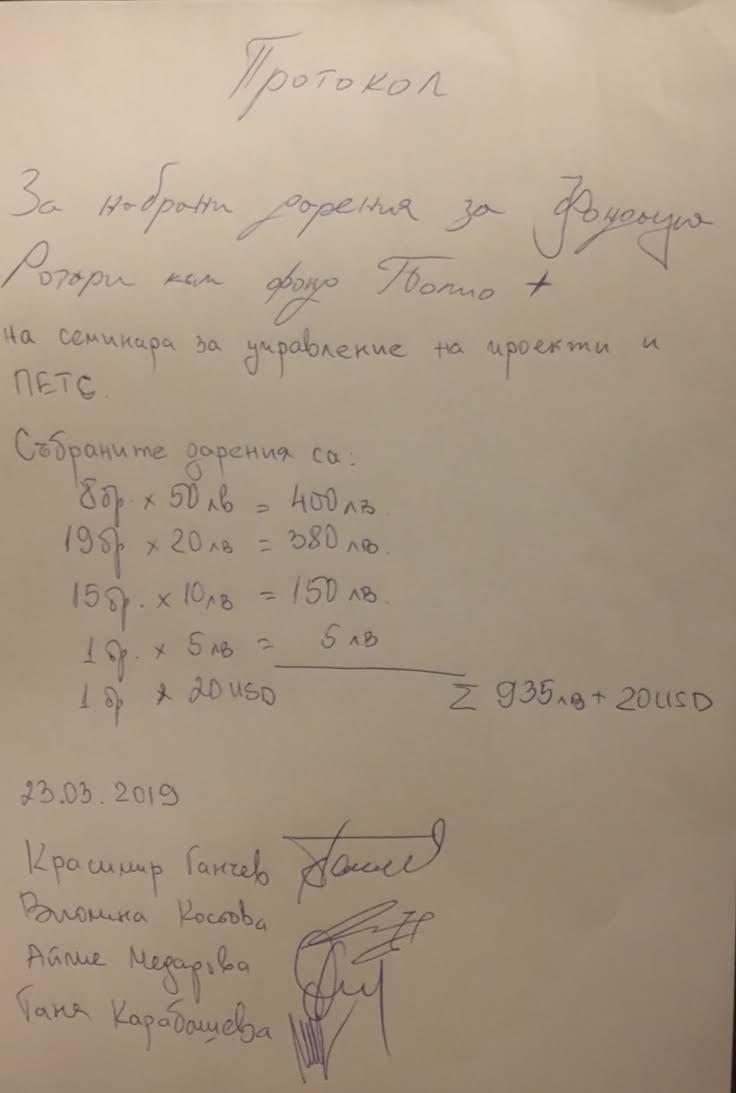 Протокол
За набрани дарения за Фондация
Ротари към фонд Полио +
на семинара за управление на проекти и
ПЕТС.
Събраните дарения са:
8бр. x 50лв = 400лв.
19бр x 20лв = 380лв.
15бр. x 10лв = 150лв.
1бр. x 5лв = 5лв
1бр x 20USD Σ 935лв + 20USD
23.03.2019
Красимир Ганчев
Костова
Айлие Медарова
Таня Карабашева